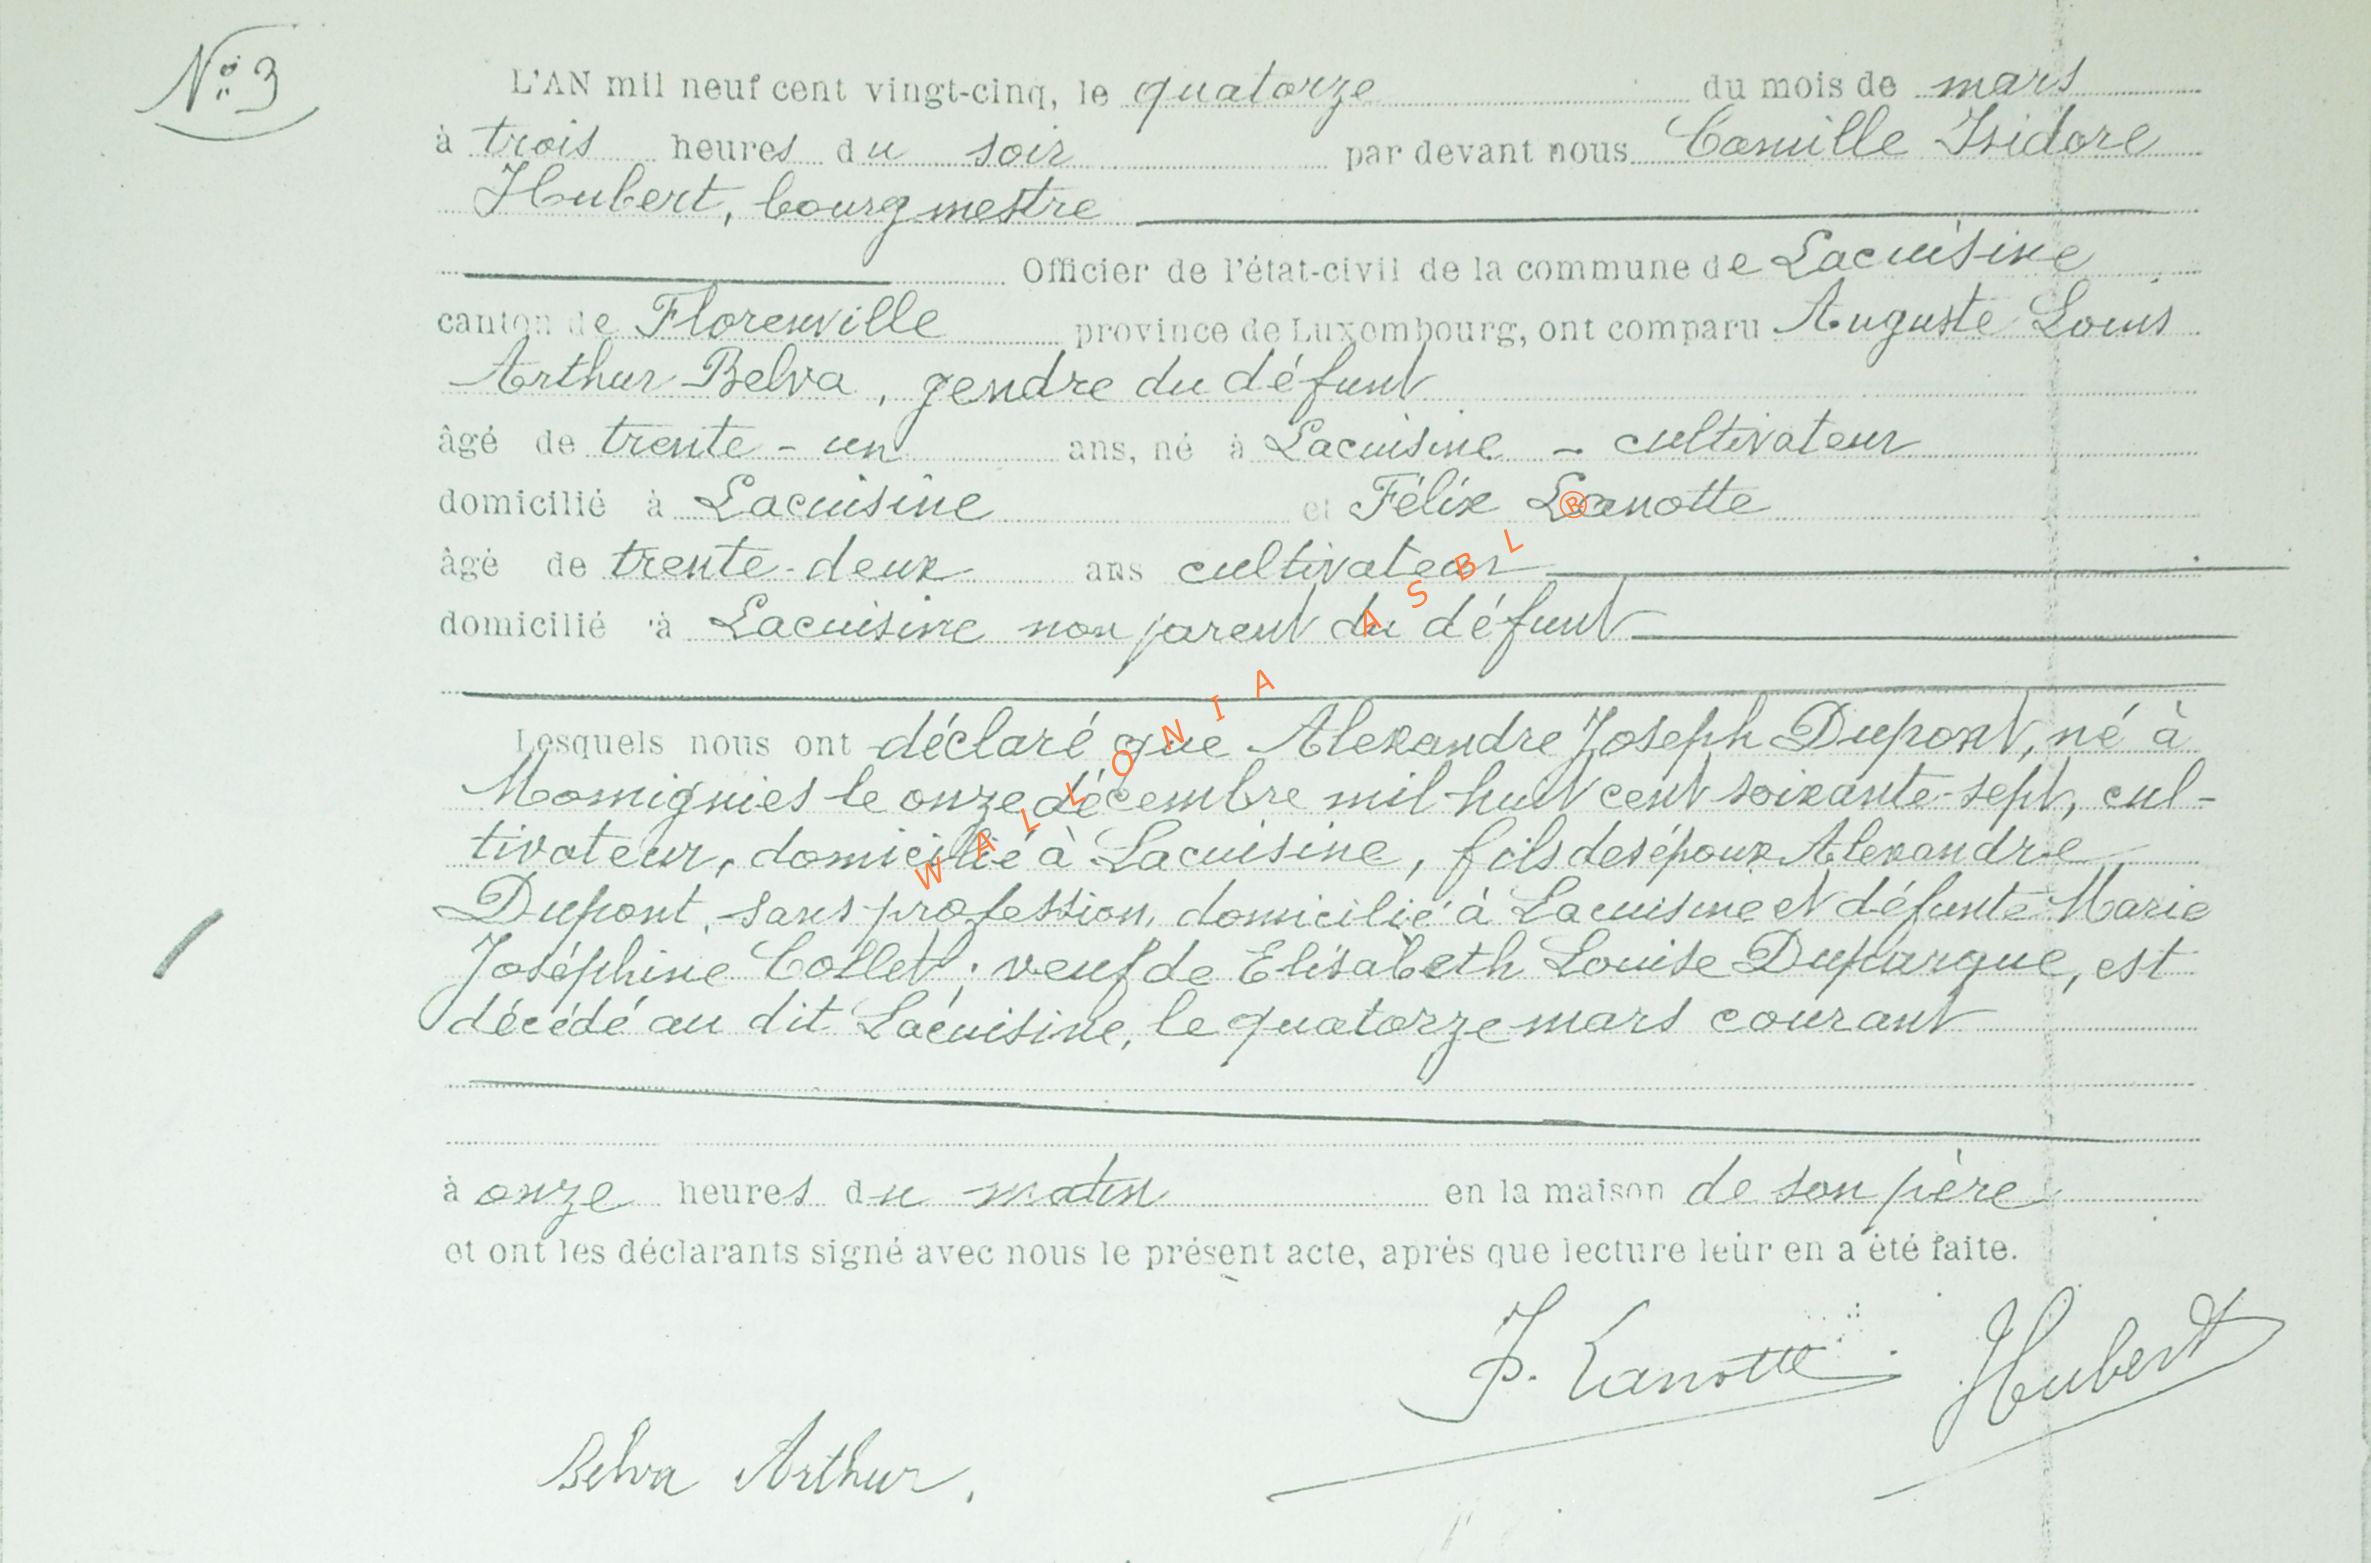 N° 3
L'AN mil neuf cent vingt-cinq, le quatorze du mois de mars
à trois heures du soir par devant nous Camille Isidore
Hubert, bourgmestre
Officier de l'état-civil de la commune de Lacuisine
canton de Florenville province de Luxembourg, ont comparu Auguste Louis
Arthur Belva, gendre du défunt
âgé de trente-un ans, né à Lacuisine - cultivateur
domicilié à Lacuisine et Félix Lanotte
âgé de trente-deux ans cultivateur
domicilié à Lacuisine non parent du défunt
Lesquels nous ont déclaré que Alexandre Joseph Dupont, né à
Momignies le onze décembre mil huit cent soixante-sept, cul-
tivateur, domicilié à Lacuisine, fils des époux Alexandre
Dupont, sans profession, domicilié à Lacuisine et défunte Marie
Joséphine Collet; veuf de Elisabeth Louise Duparque, est
décédé au dit Lacuisine, le quatorze mars courant
à onze heures du matin en la maison de son père
et ont les déclarants signé avec nous le présent acte, après que lecture leur en a été faite.
F. Lanotte Hubert
Belva Arthur.
WALLONIA ASBL ®